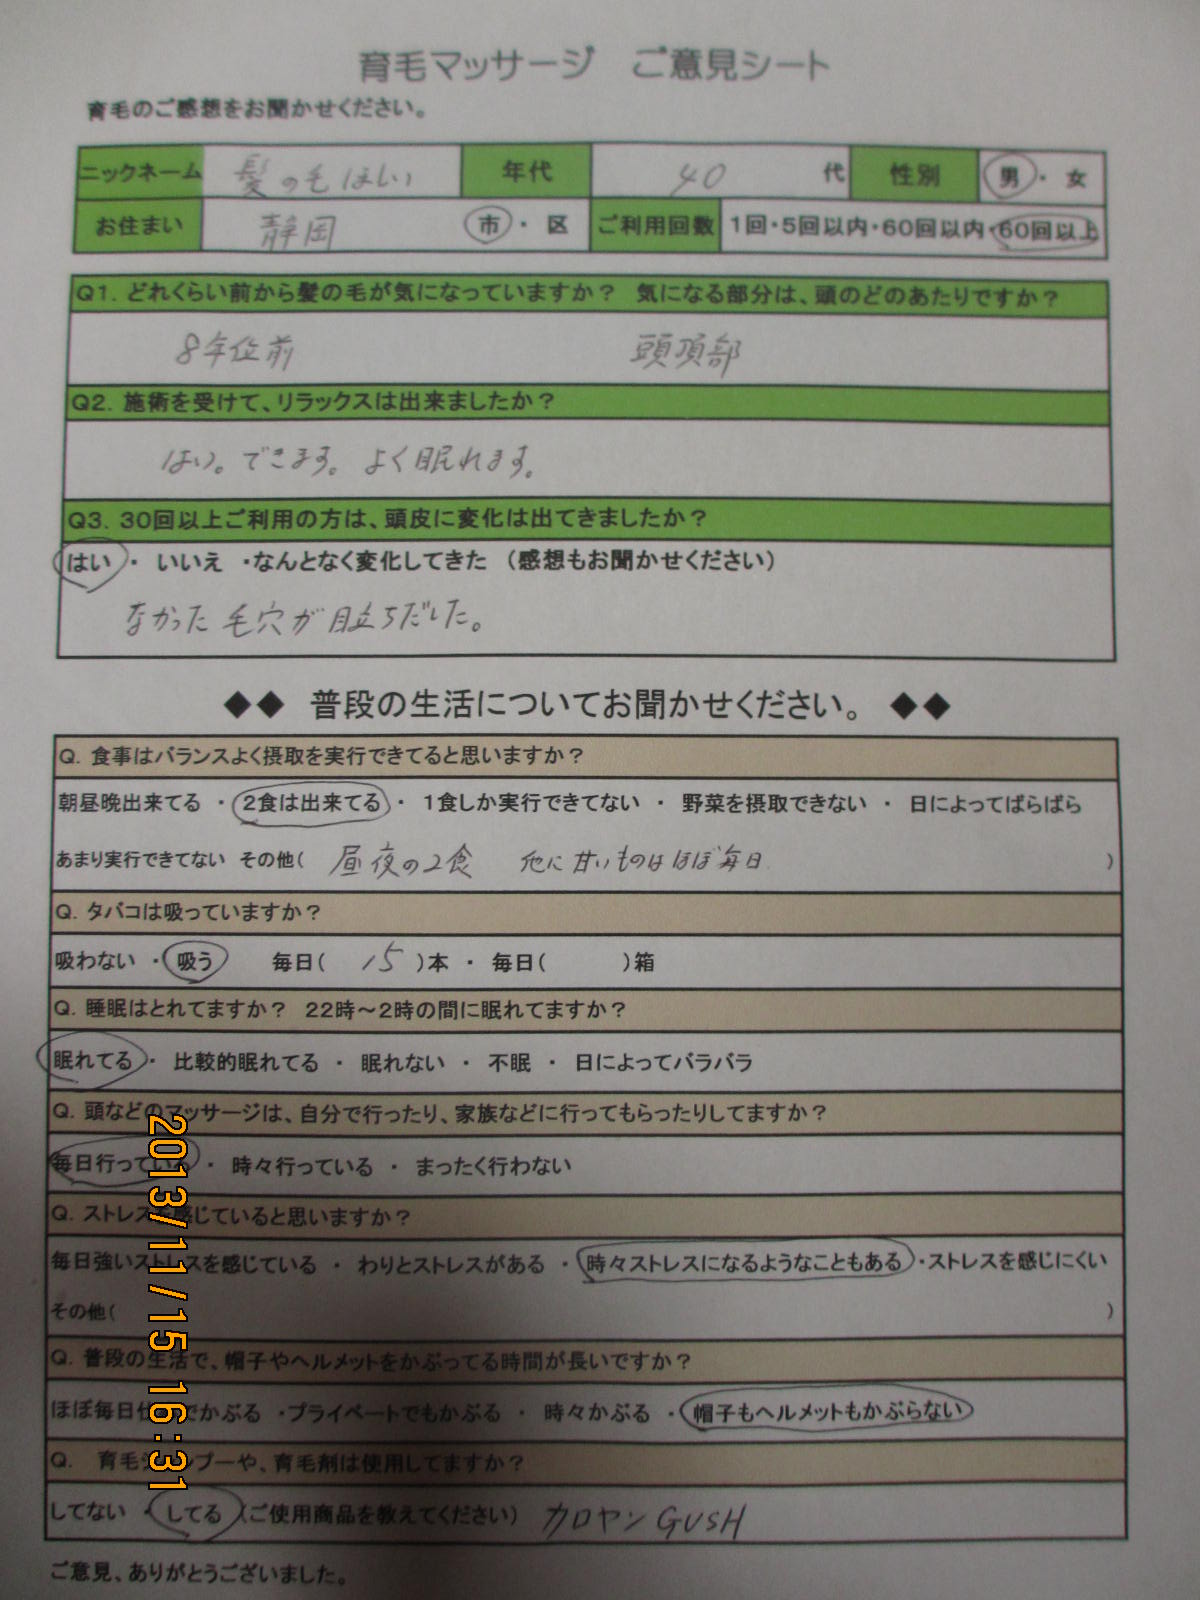 育毛マッサージ　ご意見シート
育毛のご感想をお聞かせください。
ニックネーム 髪の毛ほしい 年代 40 代 性別 男・女
お住まい 静岡 市・区 ご利用回数 1回・5回以内・60回以内・60回以上
Q1. どれくらい前から髪の毛が気になっていますか？　気になる部分は、頭のどのあたりですか？
8年位前　頭頂部
Q2. 施術を受けて、リラックスは出来ましたか？
はい。できます。よく眠れます。
Q3. 30回以上ご利用の方は、頭皮に変化は出てきましたか？
はい・ いいえ ・なんとなく変化してきた （感想もお聞かせください）
なかった毛穴が目立ちだした。
◆◆ 普段の生活についてお聞かせください。 ◆◆
Q. 食事はバランスよく摂取を実行できてると思いますか？
朝昼晩出来てる ・ 2食は出来てる ・ 1食しか実行できてない ・ 野菜を摂取できない ・ 日によってばらばら
あまり実行できてない その他( 昼夜の2食　他に甘いものはほぼ毎日 )
Q. タバコは吸っていますか？
吸わない ・ 吸う　毎日( 15 )本 ・ 毎日(　)箱
Q. 睡眠はとれてますか？ 22時～2時の間に眠れてますか？
眠れてる ・ 比較的眠れてる ・ 眠れない ・ 不眠 ・ 日によってバラバラ
Q. 頭などのマッサージは、自分で行ったり、家族などに行ってもらったりしてますか？
毎日行っている ・ 時々行っている ・ まったく行わない
Q. ストレスを感じていると思いますか？
毎日強いストレスを感じている ・ わりとストレスがある ・ 時々ストレスになるようなこともある ・ストレスを感じにくい
その他(　)
Q. 普段の生活で、帽子やヘルメットをかぶってる時間が長いですか？
ほぼ毎日 でかぶる ・プライベートでもかぶる ・ 時々かぶる ・ 帽子もヘルメットもかぶらない
Q. 育毛シャンプーや、育毛剤は使用してますか？
してない ・ してる （ご使用商品を教えてください） カロヤン GUSH
ご意見、ありがとうございました。
2013/11/15 16:31